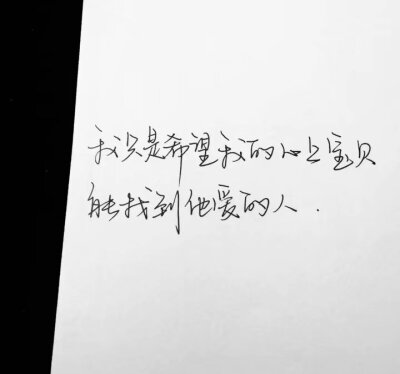 我只是希望我的心上宝贝
能找到他爱的人.